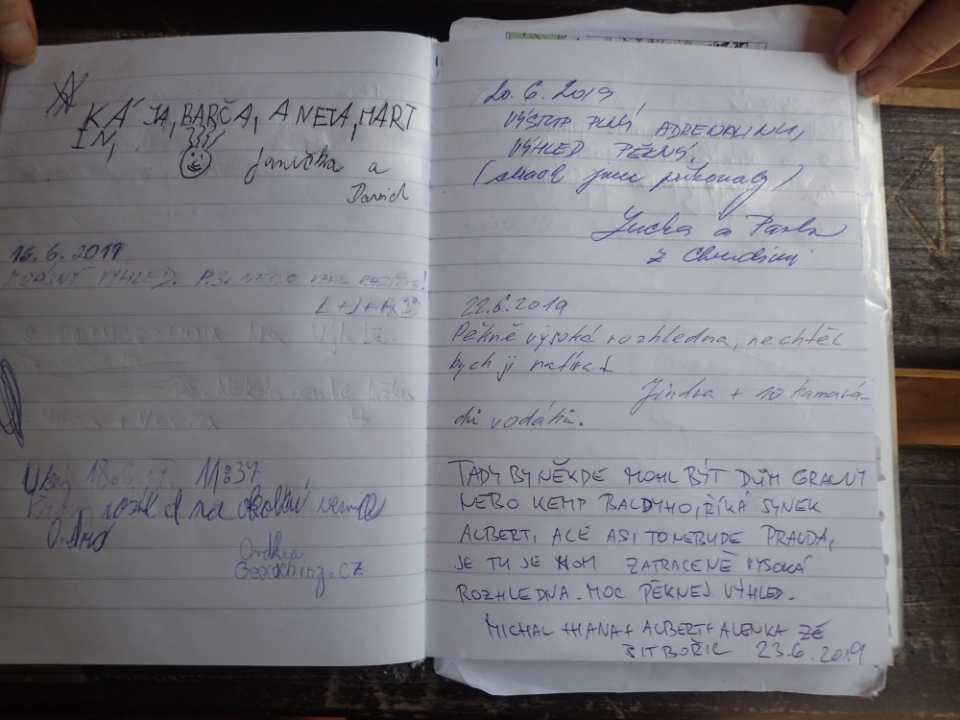 KÁJA, BARČA, ANETA, MART
IN,
Janička a
David
16.6.2019
KRÁSNÝ VÝHLED. P.S. NĚKDO
18.6. 11:39
na okolní
Ondra
Geocaching.CZ
20.6.2019
VÝSTUP PLNÝ ADRENALINU,
VÝHLED PĚKNÝ.
(strach jsme překonaly)
Lucka a Pavla
z Chrudimi
22.6.2019
Pěkně vysoká rozhledna, nechtěl
bych ji natírat
Jindra + 10 kamará-
dů vodáků.
TADY BY NĚKDE MOHL BÝT DŮM GRANNY
NEBO KEMP BALDYHO, ŘÍKÁ SYNEK
ALBERT, ALE ASI TO NEBUDE PRAVDA,
JE TU JE NOM ZATRACENĚ VYSOKÁ
ROZHLEDNA. MOC PĚKNEJ VÝHLED.
MICHAL + HANA + ALBERT + ALENKA ZE
ŠITBOŘIC 23.6.2019